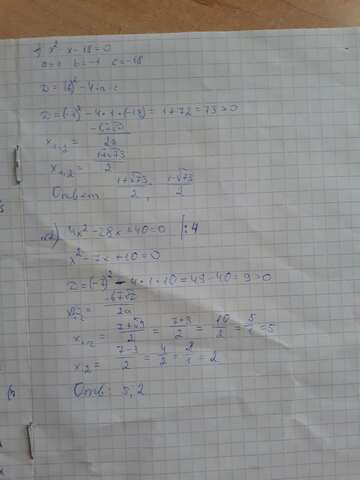 1) x² - x - 18 = 0
a = 1 b = -1 c = -18
D = (b)² - 4·a·c
D = (-1)² - 4·1·(-18) = 1 + 72 = 73 > 0
x₁,₂ = (-b±√D)/2a
x₁,₂ = (1±√73)/2
Ответ (1+√73)/2; (1-√73)/2
2) 4x² - 28x + 40 = 0 |:4
x² - 7x + 10 = 0
D = (-7)² - 4·1·10 = 49 - 40 = 9 > 0
x₁,₂ = (-b±√D)/2a
x₁,₂ = (7+√9)/2 = (7+3)/2 = 10/2 = 5/1 = 5
x₁,₂ = (7-3)/2 = 4/2 = 2/1 = 2
Отв: 5, 2